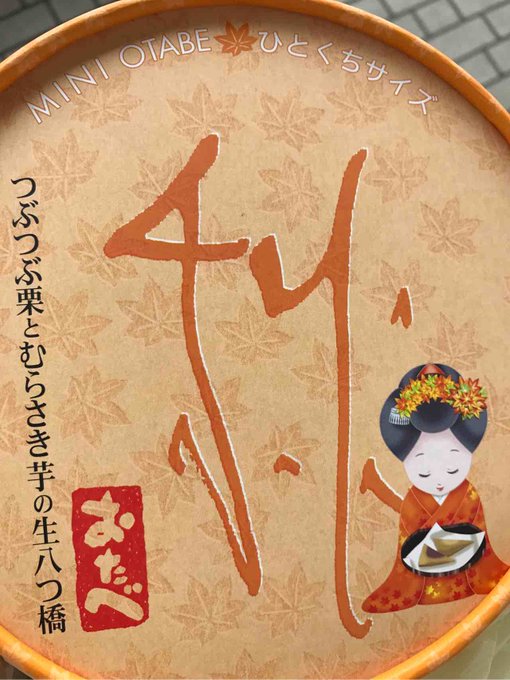 MINI OTABE ひとくちサイズ
秋
つぶつぶ栗とむらさき芋の生八つ橋
おたべ